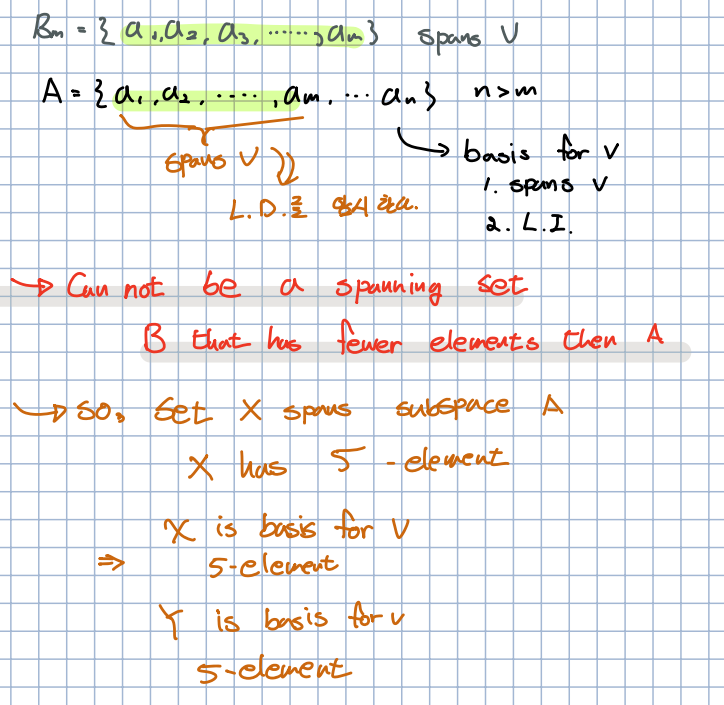 Bm = { a1, a2, a3, ......, am } spans V
A = { a1, a2, ...., am, ... an } n>m
spans V
basis for V
1. spans V
2. L.I.
L.D.
Can not be a spanning set
B that has fewer elements then A
so, set X spans subspace A
X has 5-element
X is basis for V
⇒ 5-element
Y is basis for v
5-element